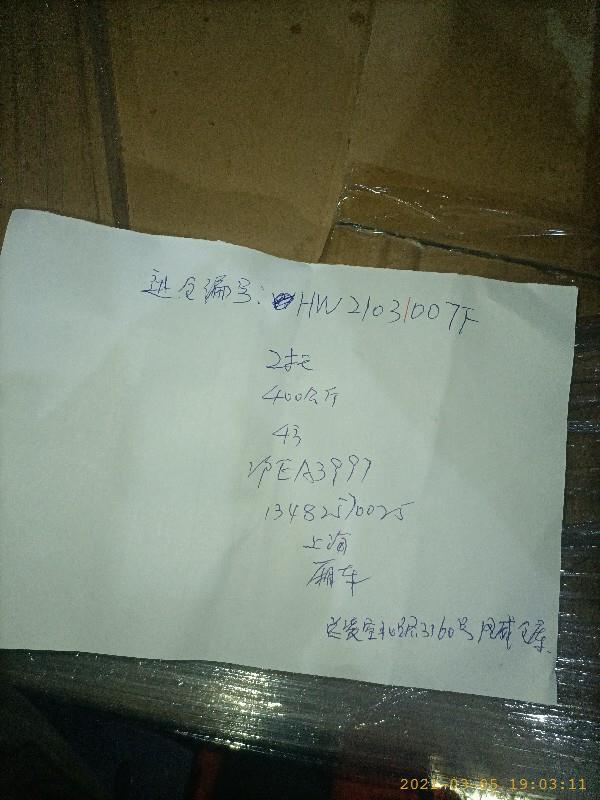 进仓编号:HW21031007F
2托
400公斤
43
沪EA3997
13482570025
上海
厢车
3160号 仓库
2021.03.05 19:03:11